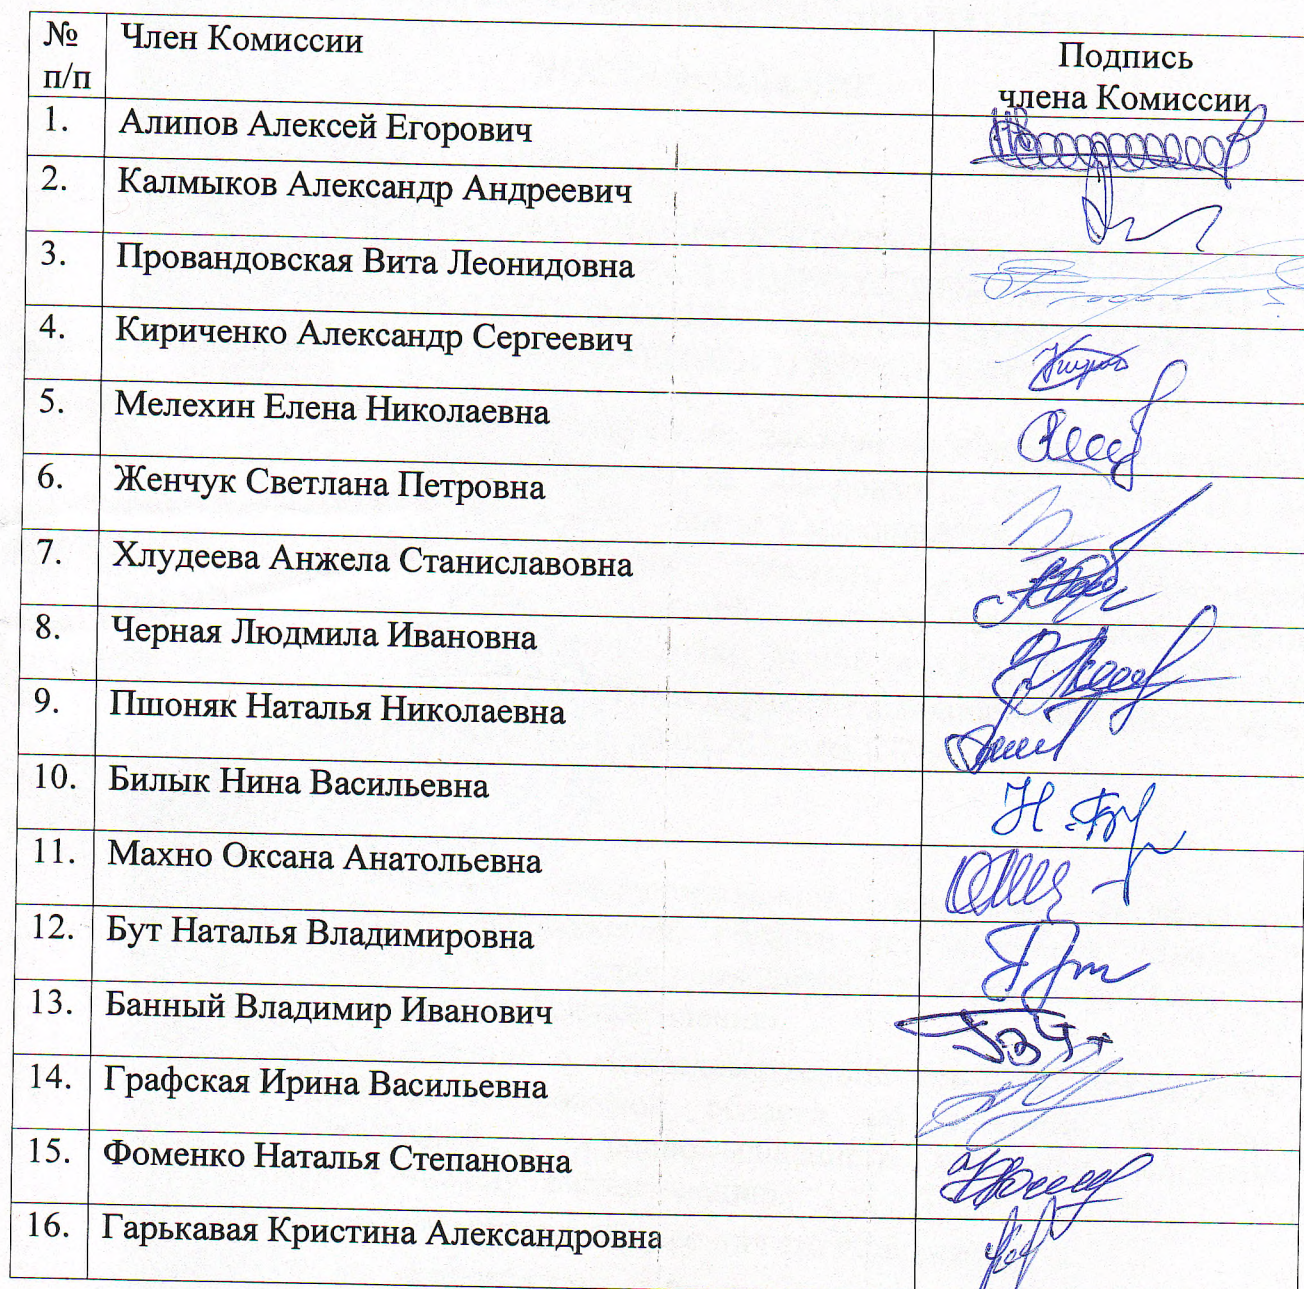 № п/п Член Комиссии Подпись члена Комиссии
1. Алипов Алексей Егорович
2. Калмыков Александр Андреевич
3. Провандовская Вита Леонидовна
4. Кириченко Александр Сергеевич
5. Мелехин Елена Николаевна
6. Женчук Светлана Петровна
7. Хлудеева Анжела Станиславовна
8. Черная Людмила Ивановна
9. Пшоняк Наталья Николаевна
10. Билык Нина Васильевна
11. Махно Оксана Анатольевна
12. Бут Наталья Владимировна
13. Банный Владимир Иванович
14. Графская Ирина Васильевна
15. Фоменко Наталья Степановна
16. Гарькавая Кристина Александровна